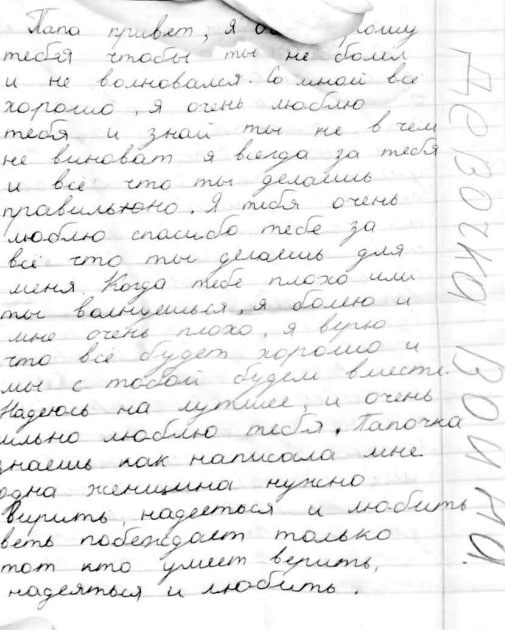 Папа привет, я
тебя чтобы ты не болел
и не волновался. Со мной всё
хорошо, я очень люблю
тебя и знай ты не в чем
не виноват я всегда за тебя
и всё что ты делаешь
правильно. Я тебя очень
люблю спасибо тебе за
всё что ты делаешь для
меня. Когда тебе плохо или
ты волнуешься, я болею и
мне очень плохо, я верю
что всё будет хорошо и
мы с тобой будем вместе.
Надеюсь на лутшее, и очень
сильно люблю тебя. Папочка
знаешь как написала мне
одна женщина нужно
верить, надеяться и любить
веть побеждает только
тот кто умеет верить,
надеяться и любить.
ДЕВОЧКА ВОИНА